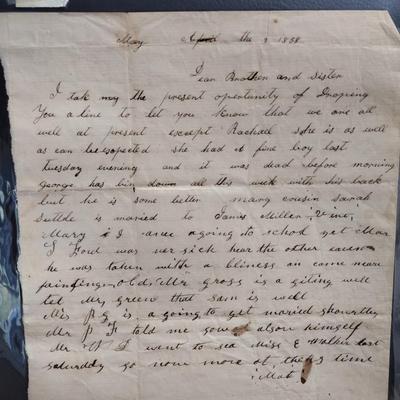 May April the 2 1858
Dear Brother and Sister
I tak my the present opertunity of Droping
You a line to let you know that we are all
well at present except Rachael she is as well
as can be exspected she had a fine boy last
tuesday evening and it was dead before morning
George has bin down all this week with his back
but he is some better cousin Sarah
Suttle is maried to James Miller
Mary & I are agoing to school yet
I Ford was sick hear the other
he was taken with a an came near
painting old Mr gross is a giting well
tel Mr green that sam is well
Mis is a going to get maried shourtley
Mr P F told me so himself
Mr went to sea Miss E Walker last
saturday so now more at this time